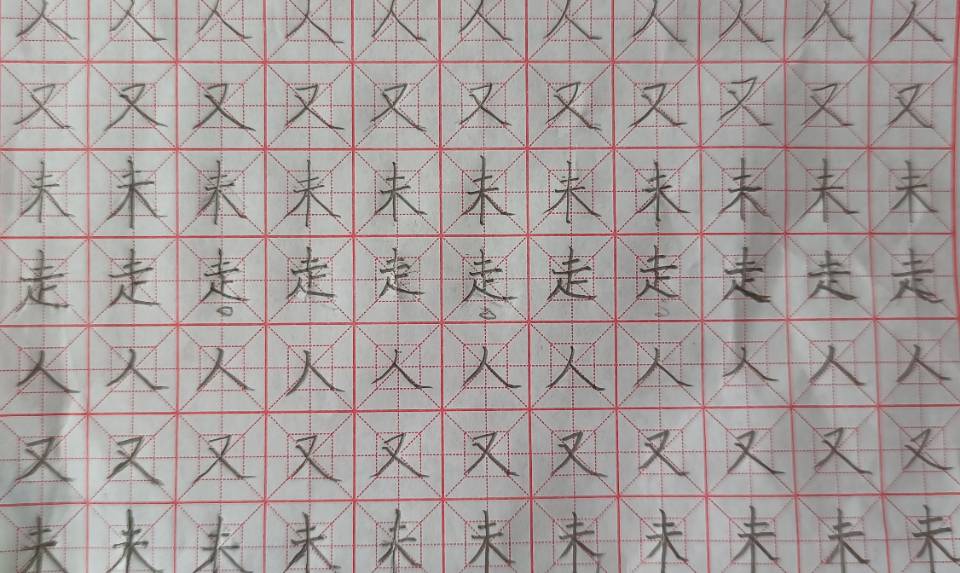 人人人人人人人人人人人
又又又又又又又又又又又
未未未未未未未未未未未
走走走走走走走走走走走
人人人人人人人人人人人
又又又又又又又又又又又
未未未未未未未未未未未